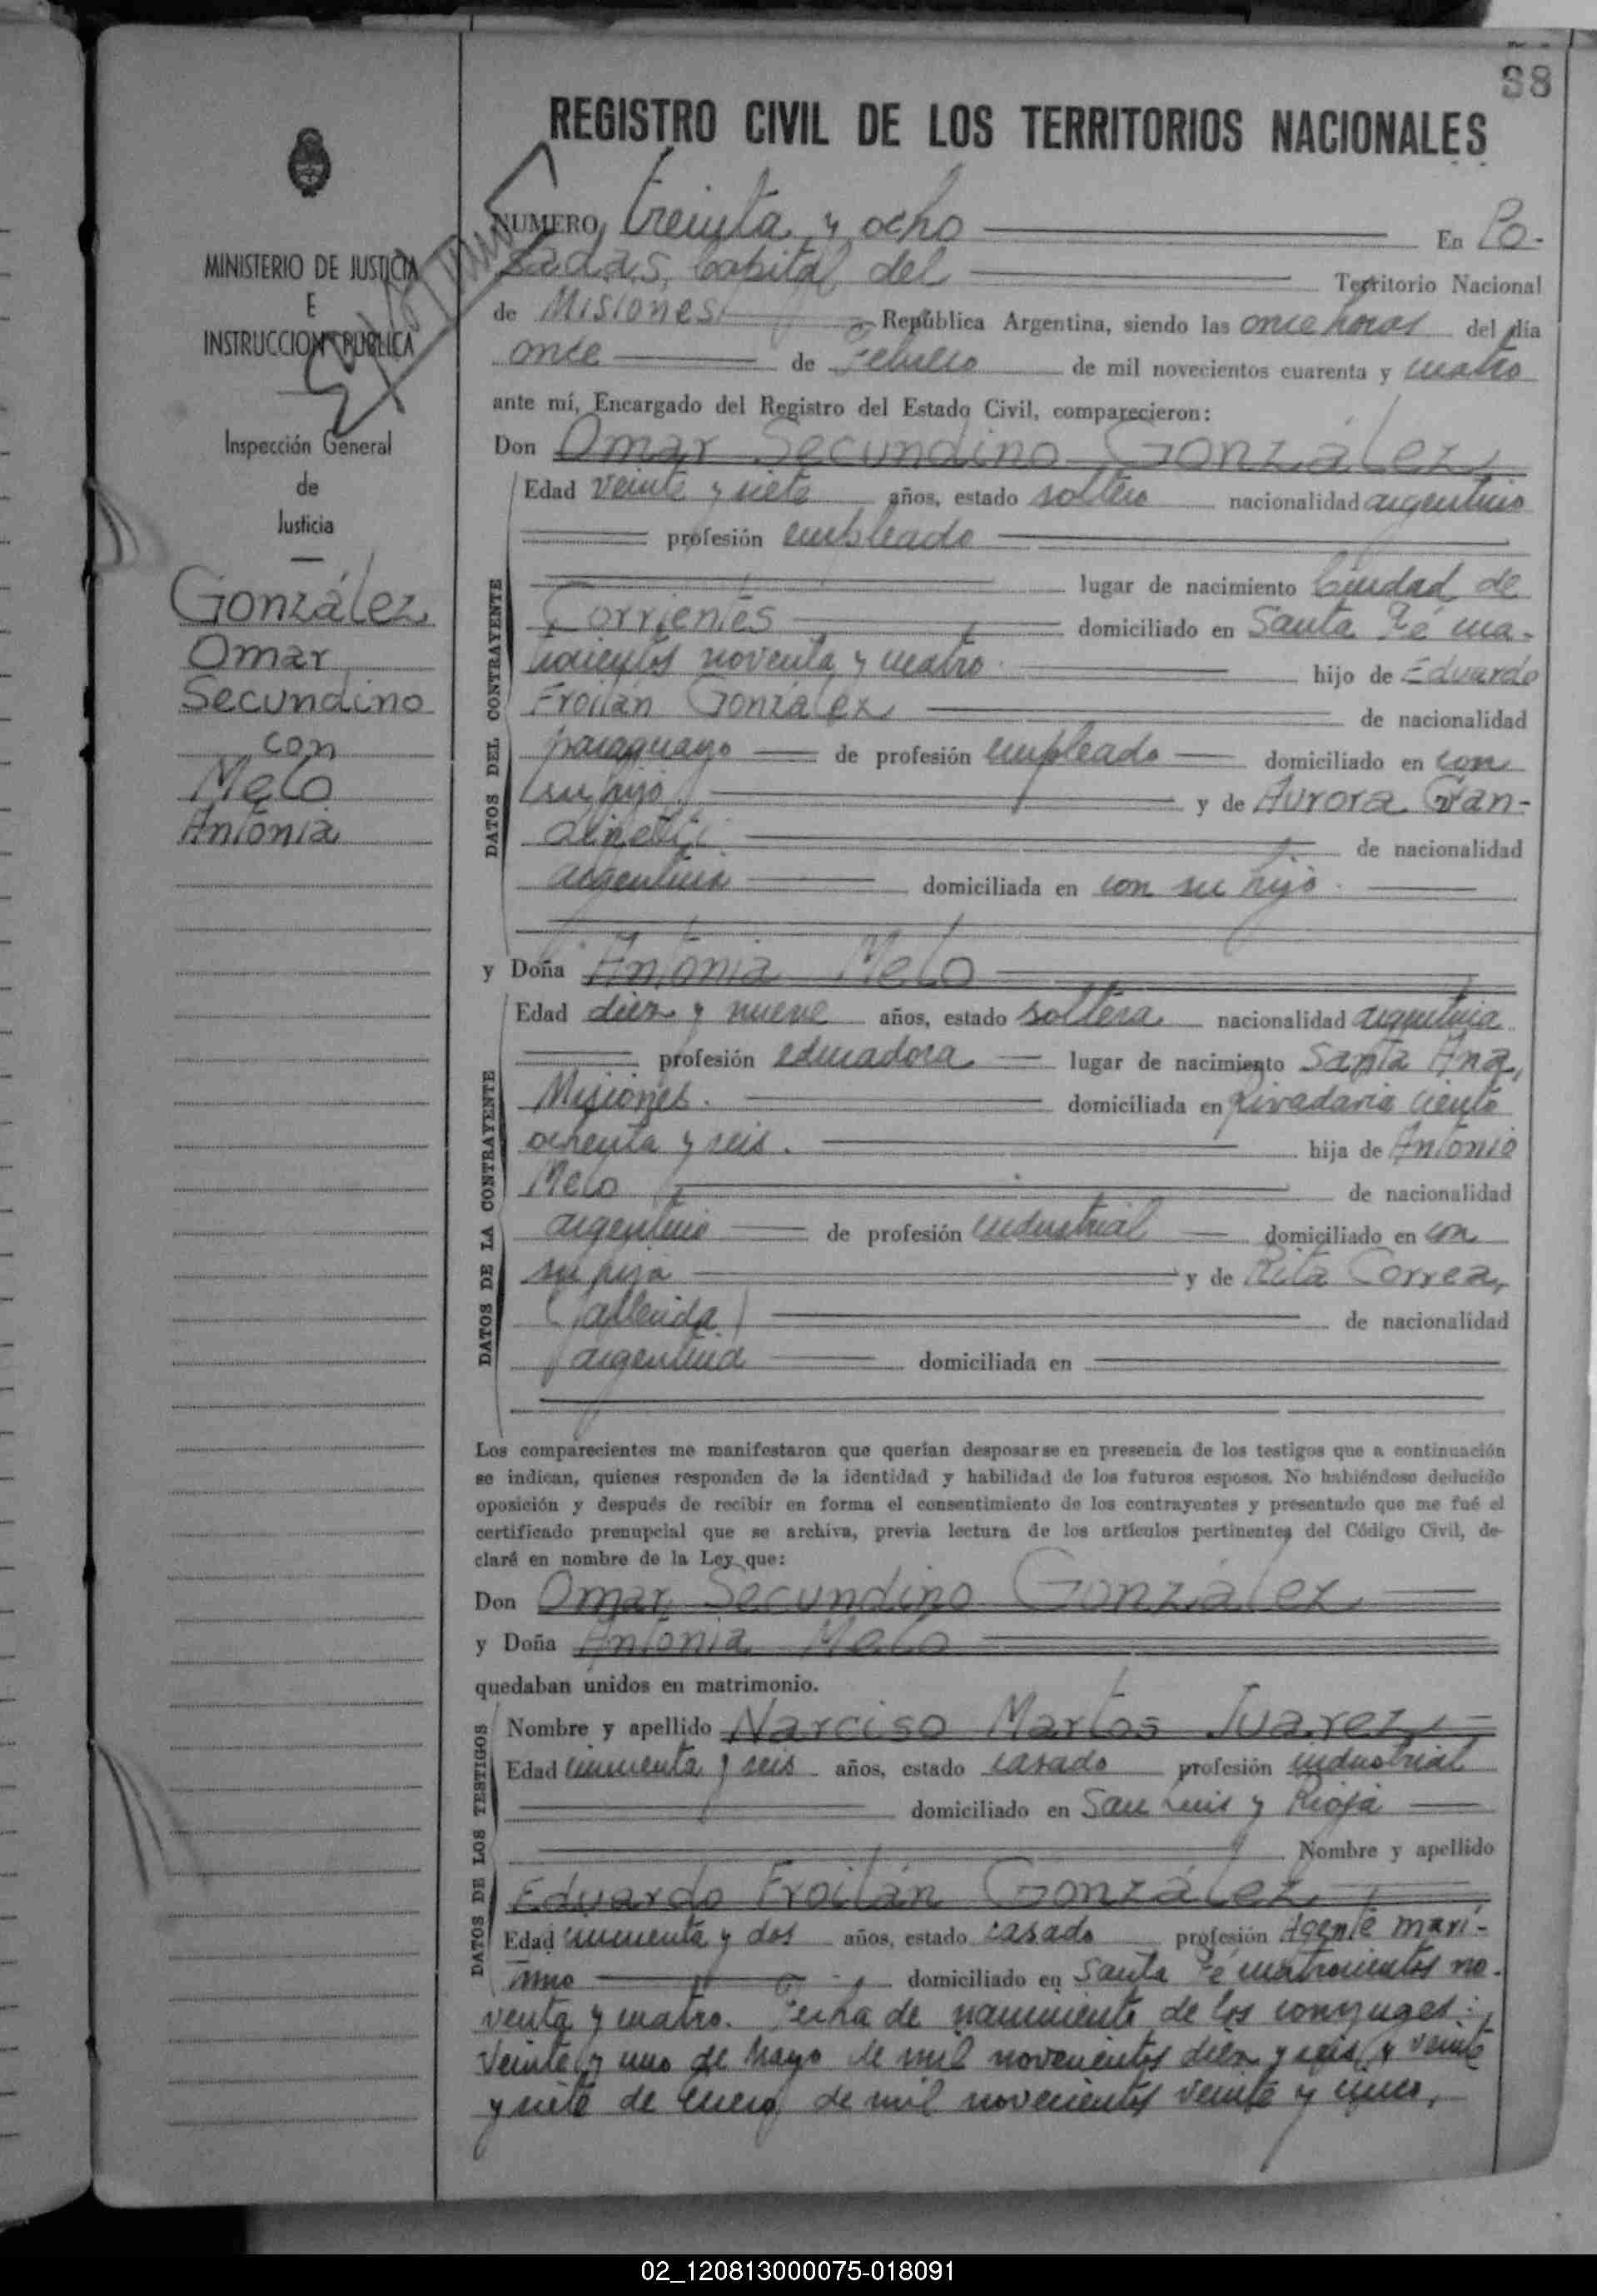 38
REGISTRO CIVIL DE LOS TERRITORIOS NACIONALES
MINISTERIO DE JUSTICIA
E
INSTRUCCION PUBLICA
Inspección General
de
Justicia
González
Omar
Secundino
con
Melo
Antonia
NUMERO treinta y ocho En Po-
sadas, Capital del Territorio Nacional
de Misiones República Argentina, siendo las once horas del día
once de Febrero de mil novecientos cuarenta y cuatro
ante mí, Encargado del Registro del Estado Civil, comparecieron:
Don Omar Secundino González
DATOS DEL CONTRAYENTE
Edad veinte y siete años, estado soltero nacionalidad argentino
profesión empleado
lugar de nacimiento Ciudad de
Corrientes domiciliado en Santa Fé cua-
trocientos noventa y cuatro. hijo de Eduardo
Froilán González de nacionalidad
paraguayo de profesión empleado domiciliado en con
su hijo y de Aurora
de nacionalidad
argentina domiciliada en con su hijo.
y Doña Antonia Melo
DATOS DE LA CONTRAYENTE
Edad diez y nueve años, estado soltera nacionalidad argentina
profesión educadora lugar de nacimiento Santa Ana,
Misiones. domiciliada en Rivadavia ciento
ochenta y seis. hija de Antonio
Melo de nacionalidad
argentino de profesión industrial domiciliado en con
su hija y de Rita Correa,
(fallecida) de nacionalidad
argentina domiciliada en
Los comparecientes me manifestaron que querían desposarse en presencia de los testigos que a continuación
se indican, quienes responden de la identidad y habilidad de los futuros esposos. No habiéndose deducido
oposición y después de recibir en forma el consentimiento de los contrayentes y presentado que me fué el
certificado prenupcial que se archiva, previa lectura de los artículos pertinentes del Código Civil, de-
claré en nombre de la Ley que:
Don Omar Secundino González
y Doña Antonia Melo
quedaban unidos en matrimonio.
DATOS DE LOS TESTIGOS
Nombre y apellido Narciso Martos Juarez,
Edad cincuenta y seis años, estado casado profesión industrial
domiciliado en San Luis y Rioja
Nombre y apellido
Eduardo Froilán González,
Edad cincuenta y dos años, estado casado profesión Agente marí-
timo domiciliado en Santa Fé cuatrocientos no-
venta y cuatro. Fecha de nacimiento de los conyuges:
veinte y uno de Mayo de mil novecientos diez y seis y veinte
y siete de Enero de mil novecientos veinte y cinco,
02_120813000075-018091